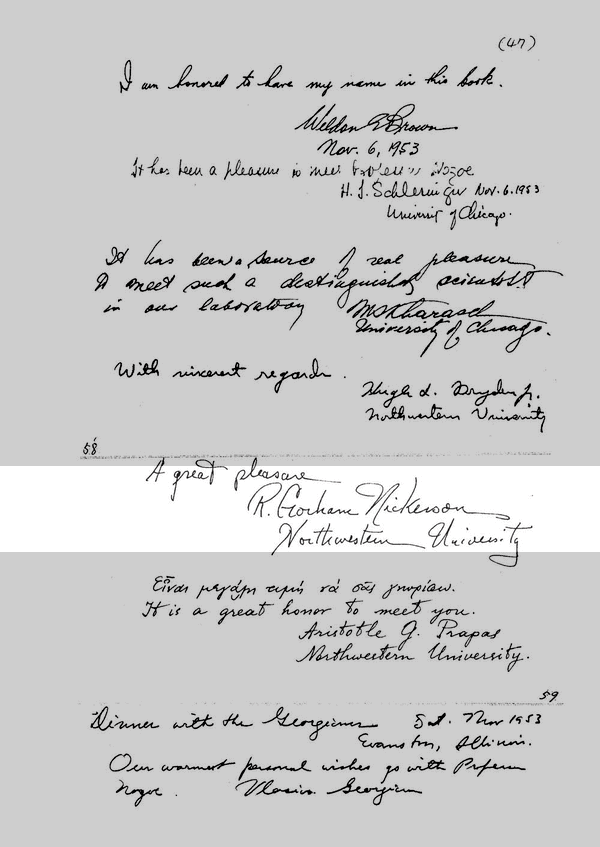 (47)
I am honored to have my name in this book.
Weldon G Brown
Nov. 6, 1953
It has been a pleasure to meet Professor Nozoe
H. I. Schlesinger Nov. 6. 1953
University of Chicago.
It has been a source of real pleasure
to meet such a distinguished scientist
in our laboratory M S Kharasch
University of Chicago.
With sincerest regards.
Hugh L. Dryden Jr.
Northwestern University
58
A great pleasure
R. Gorham Nickerson
Northwestern University
Εἶναι μεγάλη τιμή νά σᾶς γνωρίσω.
It is a great honor to meet you.
Aristotle G. Prapas
Northwestern University.
59
Dinner with the Georgians Sat. Nov 1953
Evanston, Illinois.
Our warmest personal wishes go with Professor
Nozoe.